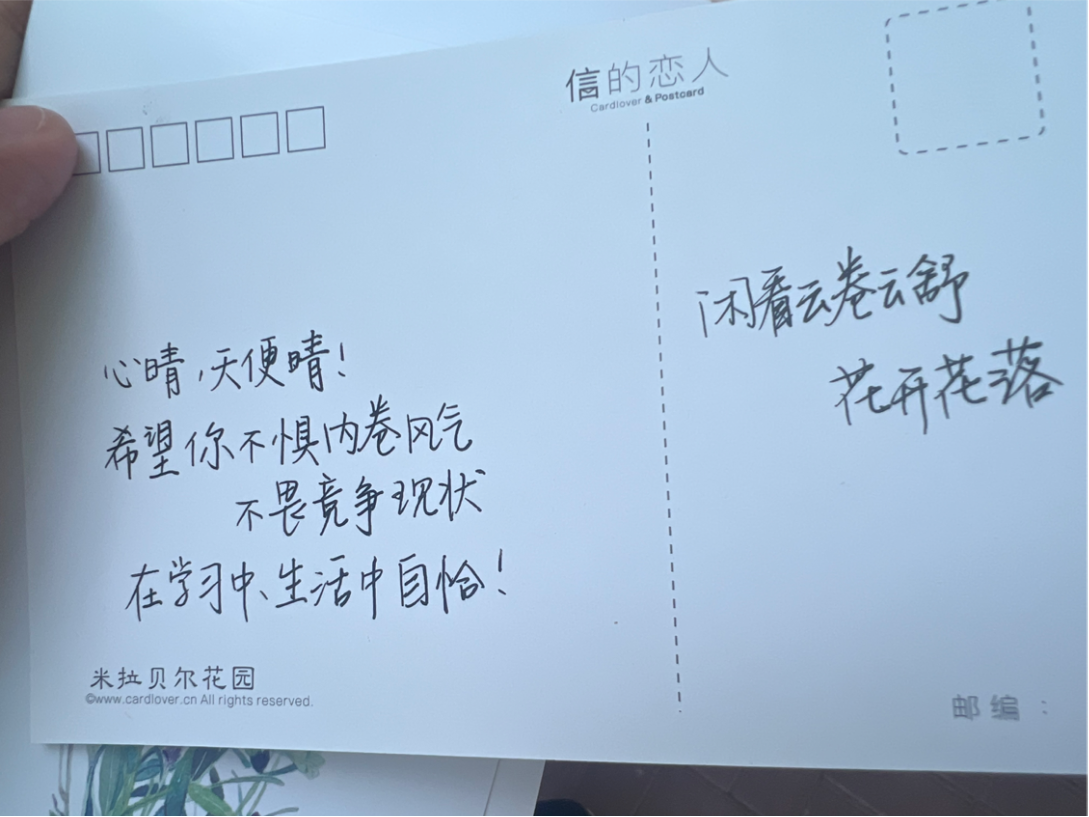 信的恋人
Cardlover & Postcard
心晴,天便晴!
希望你不惧内卷风气
不畏竞争现状
在学习中、生活中自恰!
米拉贝尔花园
©www.cardlover.cn All rights reserved.
闲看云卷云舒
花开花落
邮编: